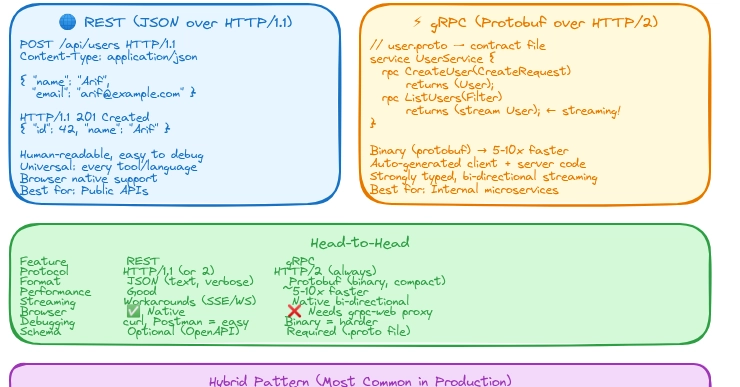 🌐 REST (JSON over HTTP/1.1)
POST /api/users HTTP/1.1
Content-Type: application/json
{ "name": "Arif",
"email": "arif@example.com" }
HTTP/1.1 201 Created
{ "id": 42, "name": "Arif" }
Human-readable, easy to debug
Universal: every tool/language
Browser native support
Best for: Public APIs
⚡ gRPC (Protobuf over HTTP/2)
// user.proto → contract file
service UserService {
rpc CreateUser(CreateRequest)
returns (User);
rpc ListUsers(Filter)
returns (stream User); ← streaming!
}
Binary (protobuf) → 5-10x faster
Auto-generated client + server code
Strongly typed, bi-directional streaming
Best for: Internal microservices
Head-to-Head
Feature REST gRPC
Protocol HTTP/1.1 (or 2) HTTP/2 (always)
Format JSON (text, verbose) Protobuf (binary, compact)
Performance Good ~5-10x faster
Streaming Workarounds (SSE/WS) Native bi-directional
Browser ✅ Native ❌ Needs grpc-web proxy
Debugging curl, Postman = easy Binary = harder
Schema Optional (OpenAPI) Required (.proto file)
Hybrid Pattern (Most Common in Production)